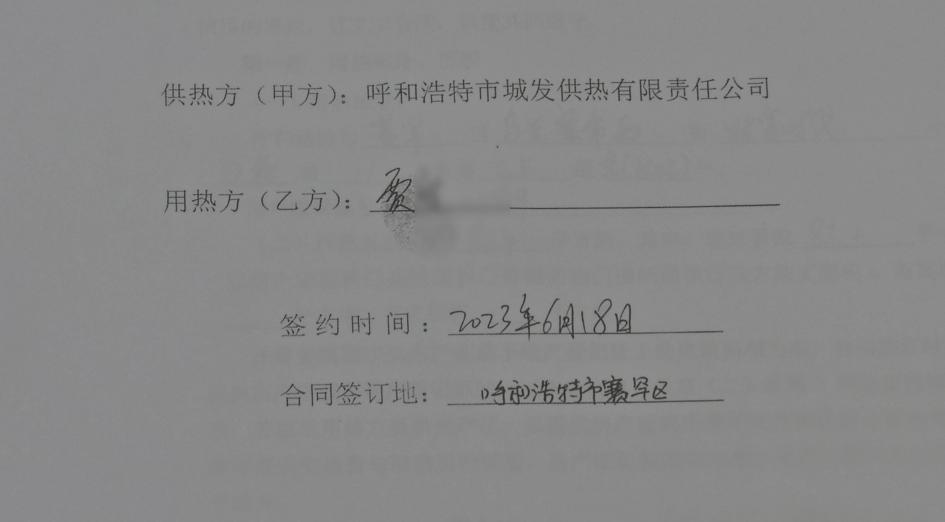 供热方（甲方）：呼和浩特市城发供热有限责任公司
用热方（乙方）：贾
签约时间：2023年6月18日
合同签订地：呼和浩特市赛罕区